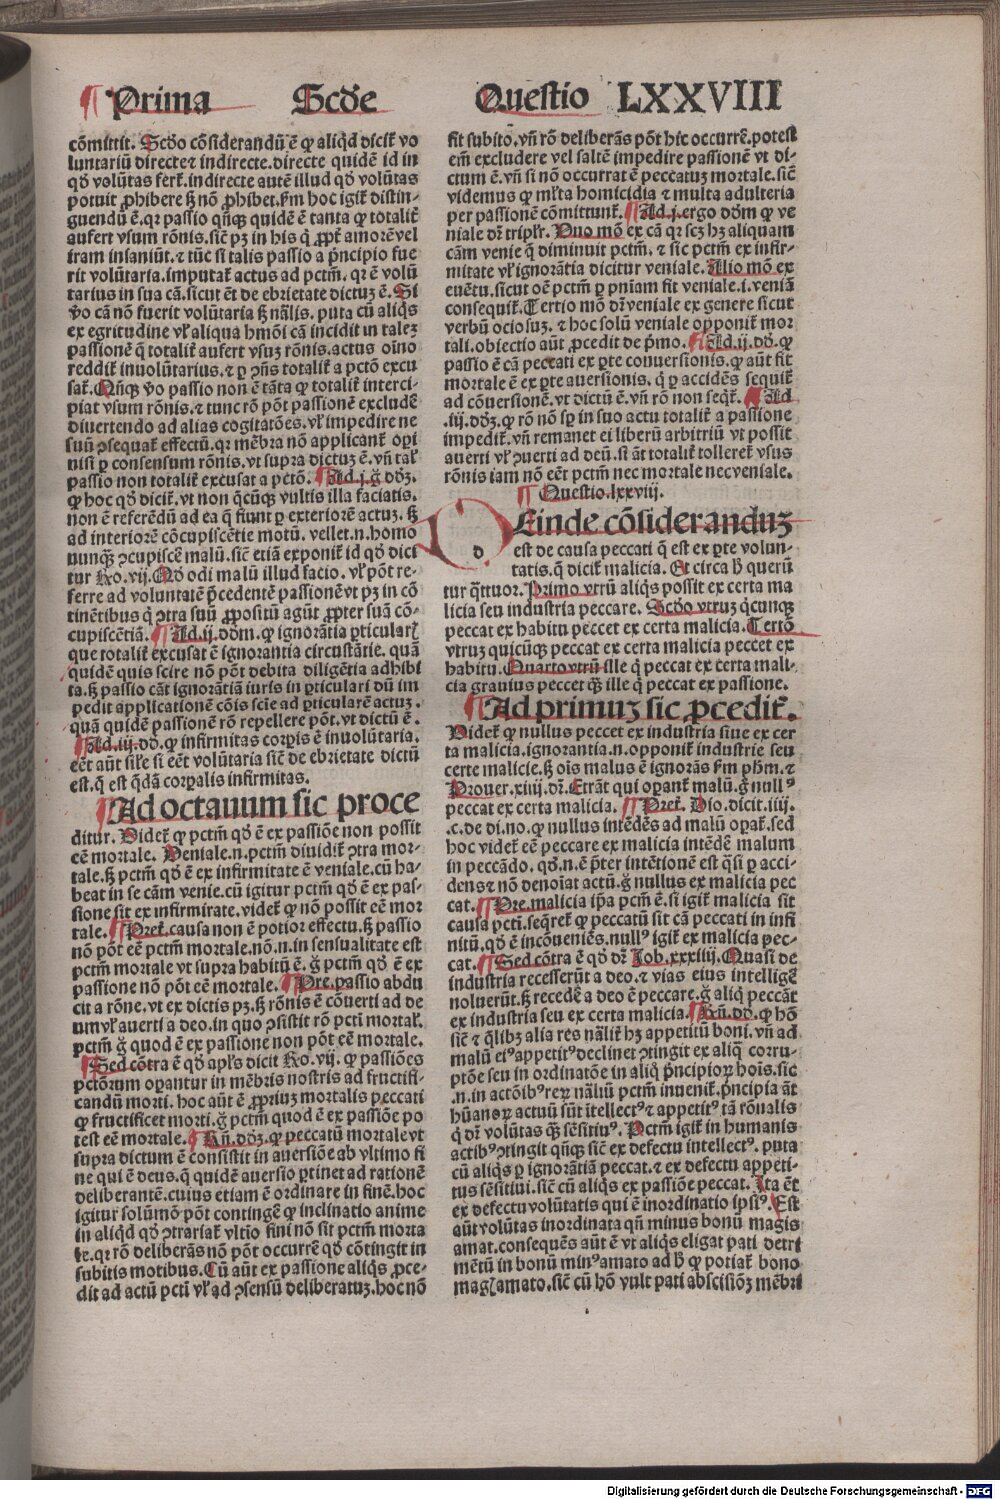 ¶ Prima Scďe Questio LXXVIII
cōmittit. Scďo cōsiderandū ē ꝙ aliqͥd dicit᷑ vo
luntariū directe ⁊ indirecte. directe quidē id in
qďˀ volūtas fert᷑. indirecte autē illud qďˀ volūtas
potuit ꝓhibere ſꝫ nō ꝓhibet. ẜm hoc igit᷑ distin-
guendū ē. qꝛ passio qn̄qꝫ quidē ē tanta ꝙ totalit᷑
aufert vsum rōnis. sic̄ pꝫ in his q̇ ꝓpt᷑ amorē vel
iram insaniūt. ⁊ tūc si talis passio a pͥncipio fue
rit volūtaria. imputat᷑ actus ad pctm̄. qꝛ ē volū
tarius in sua cā. sicut ēt de ebrietate dictuꝫ ē. Si
ṽo cā nō fuerit volūtaria ſꝫ nāĺis. puta cū aliqͥs
ex egritudine vl᷑ aliqua hmōi cā incidit in taleꝫ
passionē q̄ totalit᷑ aufert vsuꝫ rōnis. actus oīno
reddit᷑ inuolūtarius. ⁊ ꝑ ꝯn̄s totalit᷑ a pctō excu
sat᷑. Qn̄qꝫ ṽo passio non ē tāta ꝙ totalit᷑ interci-
piat vsum rōnis. ⁊ tunc rō pōt passionē excludē
diuertendo ad alias cogitatōes. vl᷑ impedire ne
suū ꝯsequat᷑ effectū. qꝛ mēbra nō applicant᷑ opi
nisi ꝑ consensum rōnis. vt supra dictuꝫ ē. vn̄ tal᷑
passio non totalit᷑ excusat a pctō. ¶ Ad .j. g̊ dďꝫ.
ꝙ hoc qďˀ dicit᷑. vt non q̄cūqꝫ vultis illa faciatis.
non ē referēdū ad ea q̄ fiunt ꝑ exteriorē actuꝫ. ſꝫ
ad interiorē cōcupiscētie motū. vellet .n. homo
nunqꝫ̄ ꝯcupiscē malū. sic̄ etiā exponit᷑ id qďˀ dici
tur Ro. vij. Qďˀ odi malū illud facio. vl᷑ pōt re-
ferre ad voluntatē p̄cedentē passionē vt pꝫ in cō
tinētibus q̇ ꝯtra suū ꝓpositū agūt ꝓpter suā cō-
cupiscētiā. ¶ Ad .ij. dďm. ꝙ ignorātia ꝑticularꝭ
que totalit᷑ excusat ē ignorantia circūstātie. quā
quidē quis scire nō pōt debita diligētia adhibi
ta. ſꝫ passio cāt ignorātiā iuris in ꝑticulari dū im
pedit applicationē cōis scīe ad ꝑticularē actuꝫ.
quā quidē passionē rō repellere pōt. vt dictū ē.
¶ Ad .iij. dďˀ. ꝙ infirmitas corꝑis ē inuolūtaria.
eēt aūt sil᷑e si eēt volūtaria sic̄ de ebrietate dictū
est. q̄ est q̄dā corꝑalis infirmitas.
¶ Ad octauum sic proce
ditur. Videt᷑ ꝙ pctm̄ qďˀ ē ex passiōe non possit
eē mortale. Veniale .n. pctm̄ diuidit᷑ ꝯtra mor-
tale. ſꝫ pctm̄ qďˀ ē ex infirmitate ē veniale. cū ha-
beat in se cām venie. cū igitur pctm̄ qďˀ ē ex pas-
sione sit ex infirmirate. videt᷑ ꝙ nō possit eē mor
tale. ¶ Pret᷑. causa non ē potior effectu. ſꝫ passio
nō pōt eē pctm̄ mortale. nō .n. in sensualitate est
pctm̄ mortale vt supra habitū ē. g̊ pctm̄ qďˀ ē ex
passione nō pōt eē mortale. ¶ Pre. passio abdu
cit a rōne. vt ex dictis pꝫ. ſꝫ rōnis ē cōuerti ad de
um vl᷑ auerti a deo. in quo ꝯsistit rō pcti mortal᷑.
pctm̄ g̊ quod ē ex passione non pōt eē mortale.
¶ Sed cōtra ē qďˀ apl᷑s dicit Ro. vij. ꝙ passiōes
pctōrum oꝑantur in mēbris nostris ad fructifi-
candū morti. hoc aūt ē ꝓpriuꝫ mortalis peccati
ꝙ fructificet morti. g̊ pctm̄ quod ē ex passiōe po
test eē mortale. ¶ Rn̄. dďꝫ. ꝙ peccatū mortale vt
supra dictum ē consistit in auersiōe ab vltimo fi
ne qui ē deus. q̄ quidē auersio ꝑtinet ad rationē
deliberantē. cuius etiam ē ordinare in finē. hoc
igitur solūmō pōt contingē ꝙ inclinatio anime
in aliqͥd qďˀ ꝯtrariat᷑ vltīo fini nō sit pctm̄ morta
le. qꝛ rō deliberās nō pōt occurrē qďˀ cōtingit in
subitis motibus. Cū aūt ex passione aliqͥs ꝓce-
dit ad actū pcti vl᷑ ad ꝯsensū deliberatuꝫ. hoc nō
fit subito. vn̄ rō deliberās pōt hic occurrē. potest
em̄ excludere vel saltē impedire passionē vt di-
ctum ē. vn̄ si nō occurrat ē peccatuꝫ mortale. sic̄
videmus ꝙ ml᷑ta homicidia ⁊ multa adulteria
per passionē cōmittunt᷑. ¶ Ad .j. ergo dďm ꝙ ve
niale dr̄ tripl᷑r. Vno mō ex cā qꝛ scꝫ hꝫ aliquam
cām venie q̄ diminuit pctm̄. ⁊ sic pctm̄ ex infir-
mitate vl᷑ ignorātia dicitur veniale. Alio mō ex
euētu. sicut oē pctm̄ ꝑ pn̄iam fit veniale .i. veniā
consequit᷑. Tertio mō dr̄ veniale ex genere sicut
verbū ociosuꝫ. ⁊ hoc solū veniale opponit᷑ mor
tali. obiectio aūt ꝓcedit de pͥmo. ¶ Ad .ij. dďˀ. ꝙ
passio ē cā peccati ex ꝑte conuersionis. ꝙ aūt fit
mortale ē ex ꝑte auersionis. q̄ ꝑ accidēs sequit᷑
ad cōuersionē. vt dictū ē. vn̄ rō non seqͥt᷑. ¶ Ad
.iij. dďꝫ. ꝙ rō nō sꝑ in suo actu totalit᷑ a passione
impedit᷑. vn̄ remanet ei liberū arbitriū vt possit
auerti vl᷑ ꝯuerti ad deū. si āt totalit᷑ tolleret᷑ vsus
rōnis iam nō eēt pctm̄ nec mortale nec veniale.
¶ Questio .lxxviij.
d Einde cōsideranduꝫ
est de causa peccati q̄ est ex ꝑte volun-
tatis. q̄ dicit᷑ malicia. Et circa h̊ querū
tur q̄ttuor. Primo vtrū aliqͥs possit ex certa ma
licia seu industria peccare. Scďo vtruꝫ qͥcunqꝫ
peccat ex habitu peccet ex certa malicia. Tertō
vtruꝫ quicūqꝫ peccat ex certa malicia peccet ex
habitu. Quarto vtrū ille q̇ peccat ex certa mali-
cia grauius peccet qꝫ̄ ille q̇ peccat ex passione.
¶ Ad primuꝫ sic ꝓcedit᷑.
Videt᷑ ꝙ nullus peccet ex industria siue ex cer
ta malicia. ignorantia .n. opponit᷑ industrie seu
certe malicie. ſꝫ oīs malus ē ignorās ẜm ph̄m. ⁊
Prouer. xiiij. dr̄. Errāt qui oꝑant᷑ malū. g̊ nullꝰ
peccat ex certa malicia. ¶ Pret᷑. Dio. dicit .iiij.
.c. de di. no. ꝙ nullus intēdēs ad malū oꝑat᷑. sed
hoc videt᷑ eē peccare ex malicia intēdē malum
in peccādo. qďˀ .n. ē p̄ter intētionē est q̄si ꝑ acci-
dens ⁊ nō denoīat actū. g̊ nullus ex malicia pec
cat. ¶ Pre. malicia ip̄a pctm̄ ē. si igit᷑ malicia sit
causa pcti. seqret᷑ ꝙ peccatū sit cā peccati in infi
nitū. qďˀ ē incōueniēs. nullꝰ igit᷑ ex malicia pec-
cat. ¶ Sed cōtra ē qďˀ dr̄ Iob. xxxiiij. Quasi de
industria recesserūt a deo. ⁊ vias eius intelligē
noluerūt. ſꝫ recedē a deo ē peccare. g̊ aliqͥ peccāt
ex industria seu ex certa malicia. ¶ Rn̄. dďˀ. ꝙ hō
sic̄ ⁊ q̄libꝫ alia res nāl᷑it᷑ hꝫ appetitū boni. vn̄ ad
malū eiꝰ appetitꝰ declinet ꝯtingit ex aliq̄ corru-
ptōe seu in ordinatōe in aliq̄ pͥncipioꝝ hoīs. sic
.n. in actōibꝰ reꝝ nāliū pctm̄ inuenit᷑. pͥncipia āt
hūanoꝝ actuū sūt ītellectꝰ ⁊ appetitꝰ tā rōnalis
q̇ dr̄ volūtas qꝫ̄ sēsitiuꝰ. Pctm̄ igit᷑ in humanis
actibꝰ ꝯtingit qn̄qꝫ sic̄ ex defectu intellectꝰ. puta
cū aliqͥs ꝑ ignorātiā peccat. ⁊ ex defectu appeti-
tus sēsitiui. sic̄ cū aliqͥs ex passiōe peccat. Ita ēt
ex defectu volūtatis qui ē inordinatio ipsiꝰ. Est
aūt volūtas inordinata qn̄ minus bonū magis
amat. consequēs aūt ē vt aliqͥs eligat pati detri
mētū in bonū minꝰ amato ad h̊ ꝙ potiat᷑ bono
magꝭ amato. sic̄ cū hō vult pati abscisiōꝫ mēbri
Digitalisierung gefördert durch die Deutsche Forschungsgemeinschaft - DFG